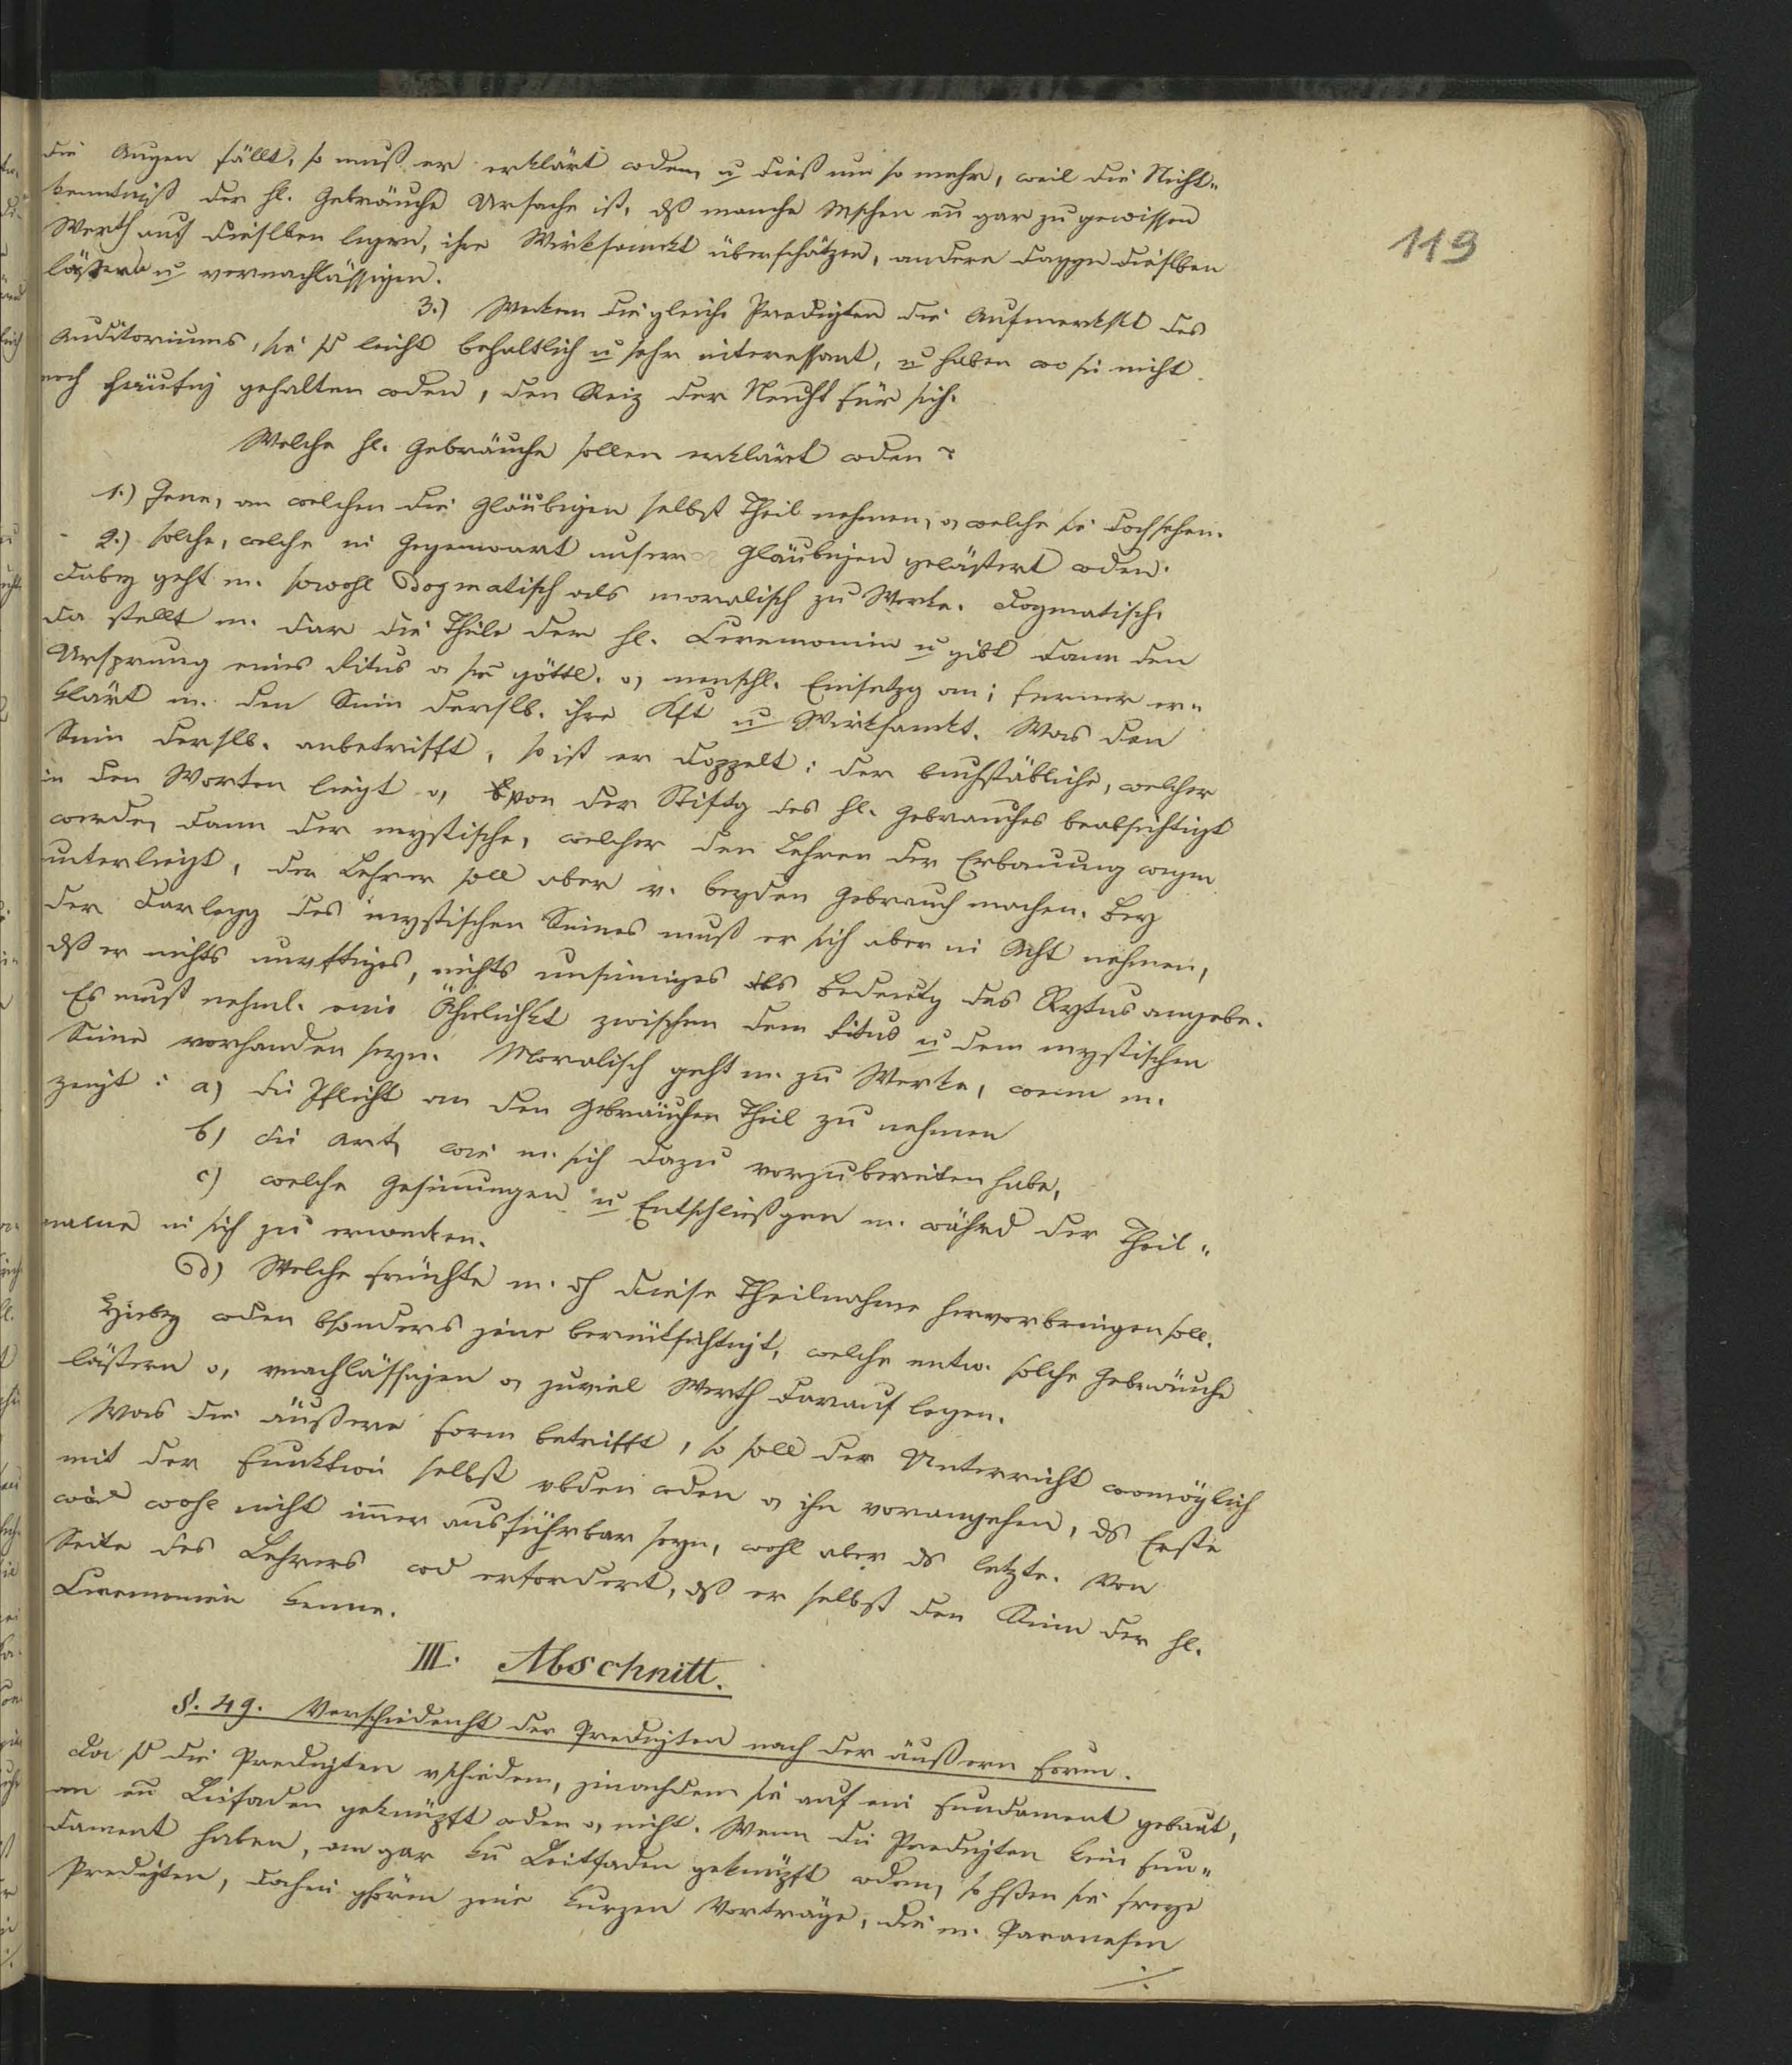 die Augen fällt, so muß er erklärt wden, u dieß um so mehr, weil die Nicht„
kenntniß der hl. Gebräuche Ursache ist, dß manche Mschen gar zu gewissen
Werth auf dieselben legen, ihre Wirksamkt überschätzen, andere dagegen dieselben
lästern u vernachlässigen.
3.) Wecken diegleiche Predigten die Aufmerkskt des
119
Auditoriums, sie sd leicht behaltlich u sehr interessant, u haben wo sie nicht
noch häufig gehalten wden, den Reiz der Neuht für sich.
Welche hl. Gebräuche sollen erklärt wden?
1.) Jene, an welchen die Gläubigen selbst Theil nehmen, o, welche sie doch sehen.
2.) solche, welche in Gegenwart unserer Gläubigen gelästert wden.
dabey geht m. sowohl Dogmatisch als moralisch zu Werke. Dogmatisch,
da stellt m. dar die Theile der hl. Ceremonien u gibt dann den
Ursprung eines Ritus o göttl. o, menschl. Einsetzg an; ferner er„
klärt m. den Sinn derslb. ihre Kft u Wirksamkt. Was den
Sinn derslb. anbetrifft, so ist er doppelt: der buchstäbliche, welcher
in den Worten liegt o, von der Stiftg des hl. Gebrauches beabsichtigt
werde, dann der mystische, welcher den Lehren der Erbauung wegen
unterliegt, der Lehrer soll aber v. beyden Gebrauch machen. Bey
der Darlegg des mystischen Sinnes muß er sich aber in Acht nehmen,
dß er nichts unvftiges, nichts unsinniges als Bedeutg des Rytus angebe.
Es muß nehml. eine Ähnlichkt zwischen dem Ritus u dem mystischen
Sinne vorhanden seyn. Moralisch geht m. zu Werke, wenn m.
zeigt: a) die Pflicht an den Gebräuchen Theil zu nehmen
b) die Art, wie m. sich dazu vorzubereiten habe,
c) welche Gesinnungen u Entschlüßgen m. währd der Theil„
name in sich zu erwecken.
d) Welche Früchte m. dh diese Theilnahme hervorbringen soll.
Hiebey wden bsonders jene berücksichtigt, welche entw. solche Gebräuche
lästern o, vnachlässigen o, zuviel Werth darauf legen.
Was die äußere Form betrifft, so soll der Unterricht womöglich
mit der Funktion selbst vbden wden o, ihr vorangehen, ds Erste
wird wohl nicht immer ausführbar seyn, wohl aber ds letzte. Von
Seite des Lehrers wd erfordert, dß er selbst den Sinn der hl.
Ceremonien kenne.
III. Abschnitt.
§. 49. Verschiedenht der Predigten nach der äußern Form.
Da sd die Predigten vschieden, jenachdem sie auf ein Fundament gebaut,
an en Leitfaden geknüpft wden o, nicht. Wenn die Predigten kein Fun„
dament haben, an gar kn Leitfaden geknüpft wden, so hßen sie freye
Predigten, dahin ghören jene kurzen Vorträge, die m. Paranesen
./.